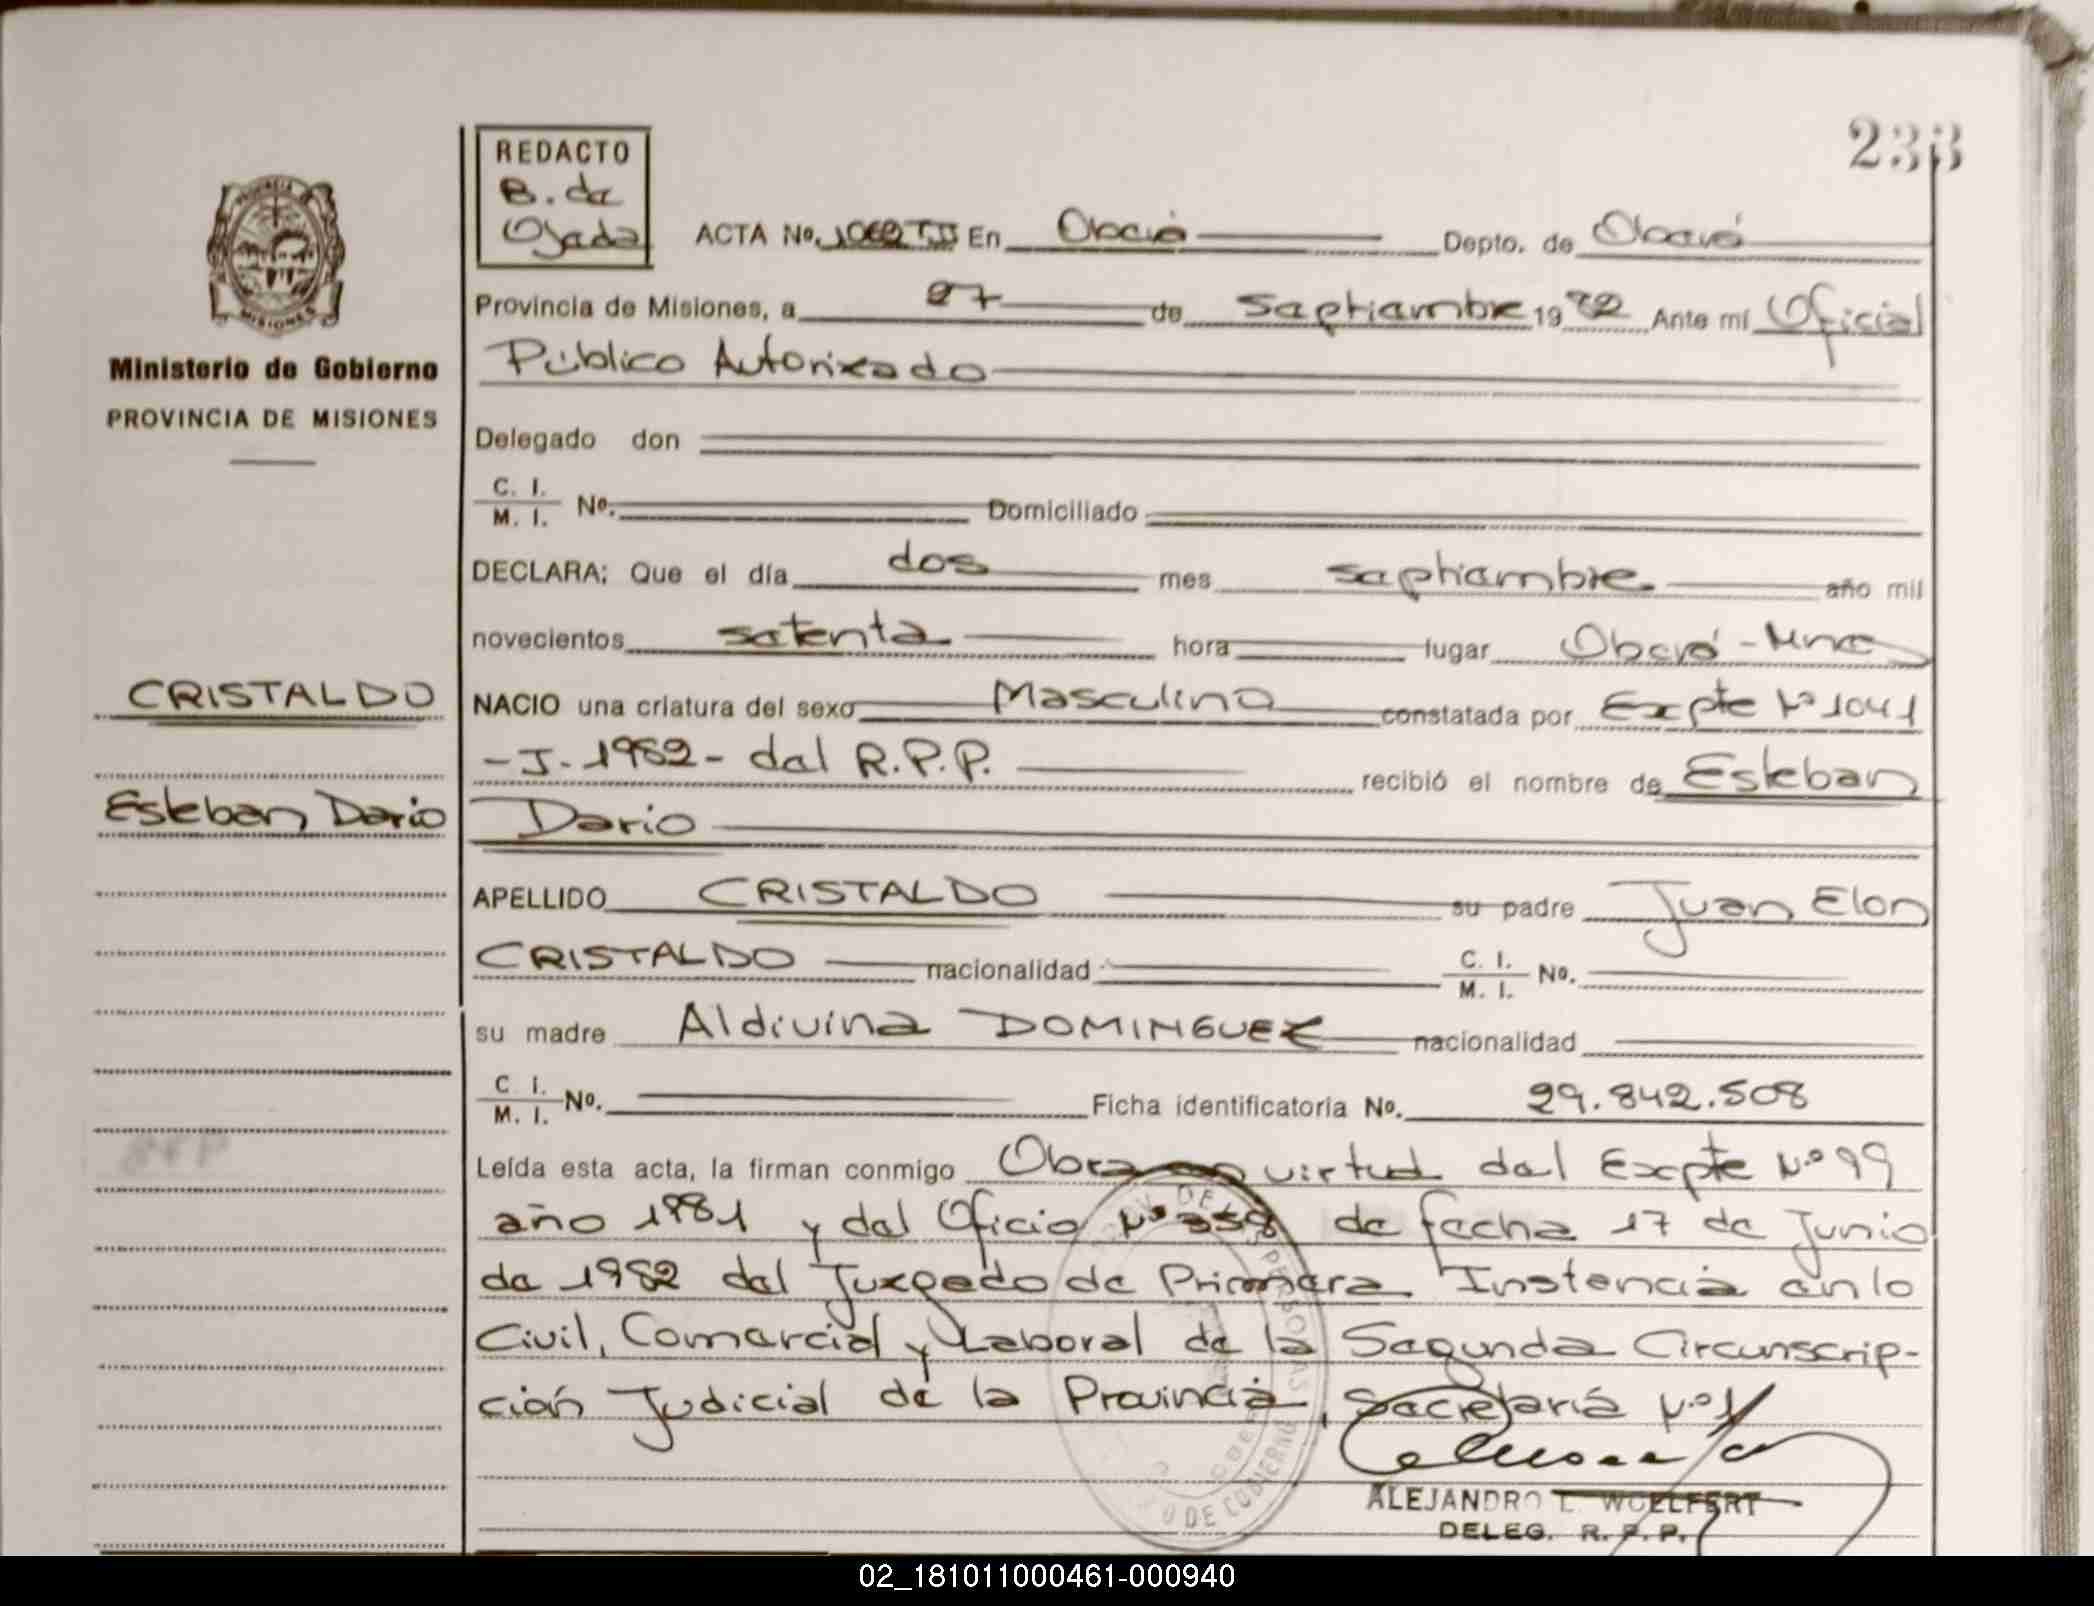 233
REDACTO
B. de
Ojeda
ACTA No. 1062 T.II En Oberá Depto. de Oberá
Provincia de Misiones, a 27 de septiembre 1982 Ante mí Oficial
Público Autorizado
Delegado don
C. I.
M. I. No. Domiciliado
DECLARA; Que el día dos mes septiembre año mil
novecientos setenta hora lugar Oberá - Mnes
NACIO una criatura del sexo Masculino constatada por Expte Nº 1041
- J - 1982 - del R.P.P. recibió el nombre de Esteban
Dario
APELLIDO CRISTALDO su padre Juan Elon
CRISTALDO nacionalidad C. I.
M. I. No.
su madre Aldivina DOMINGUEZ nacionalidad
C. I.
M. I. No. Ficha identificatoria No. 29.842.508
Leída esta acta, la firman conmigo Obra en virtud del Expte Nº 99
año 1981 y del Oficio Nº 358 de fecha 17 de Junio
de 1982 del Juzgado de Primera Instancia en lo
Civil, Comercial y Laboral de la Segunda Circunscrip-
ción Judicial de la Provincia, Secretaría Nº 1
ALEJANDRO L. WOELFERT
DELEG. R. P. P.
PROVINCIA
MISIONES
Ministerio de Gobierno
PROVINCIA DE MISIONES
CRISTALDO
Esteban Dario
DE LAS PERSONAS
O DE GOBIERNO
02_181011000461-000940